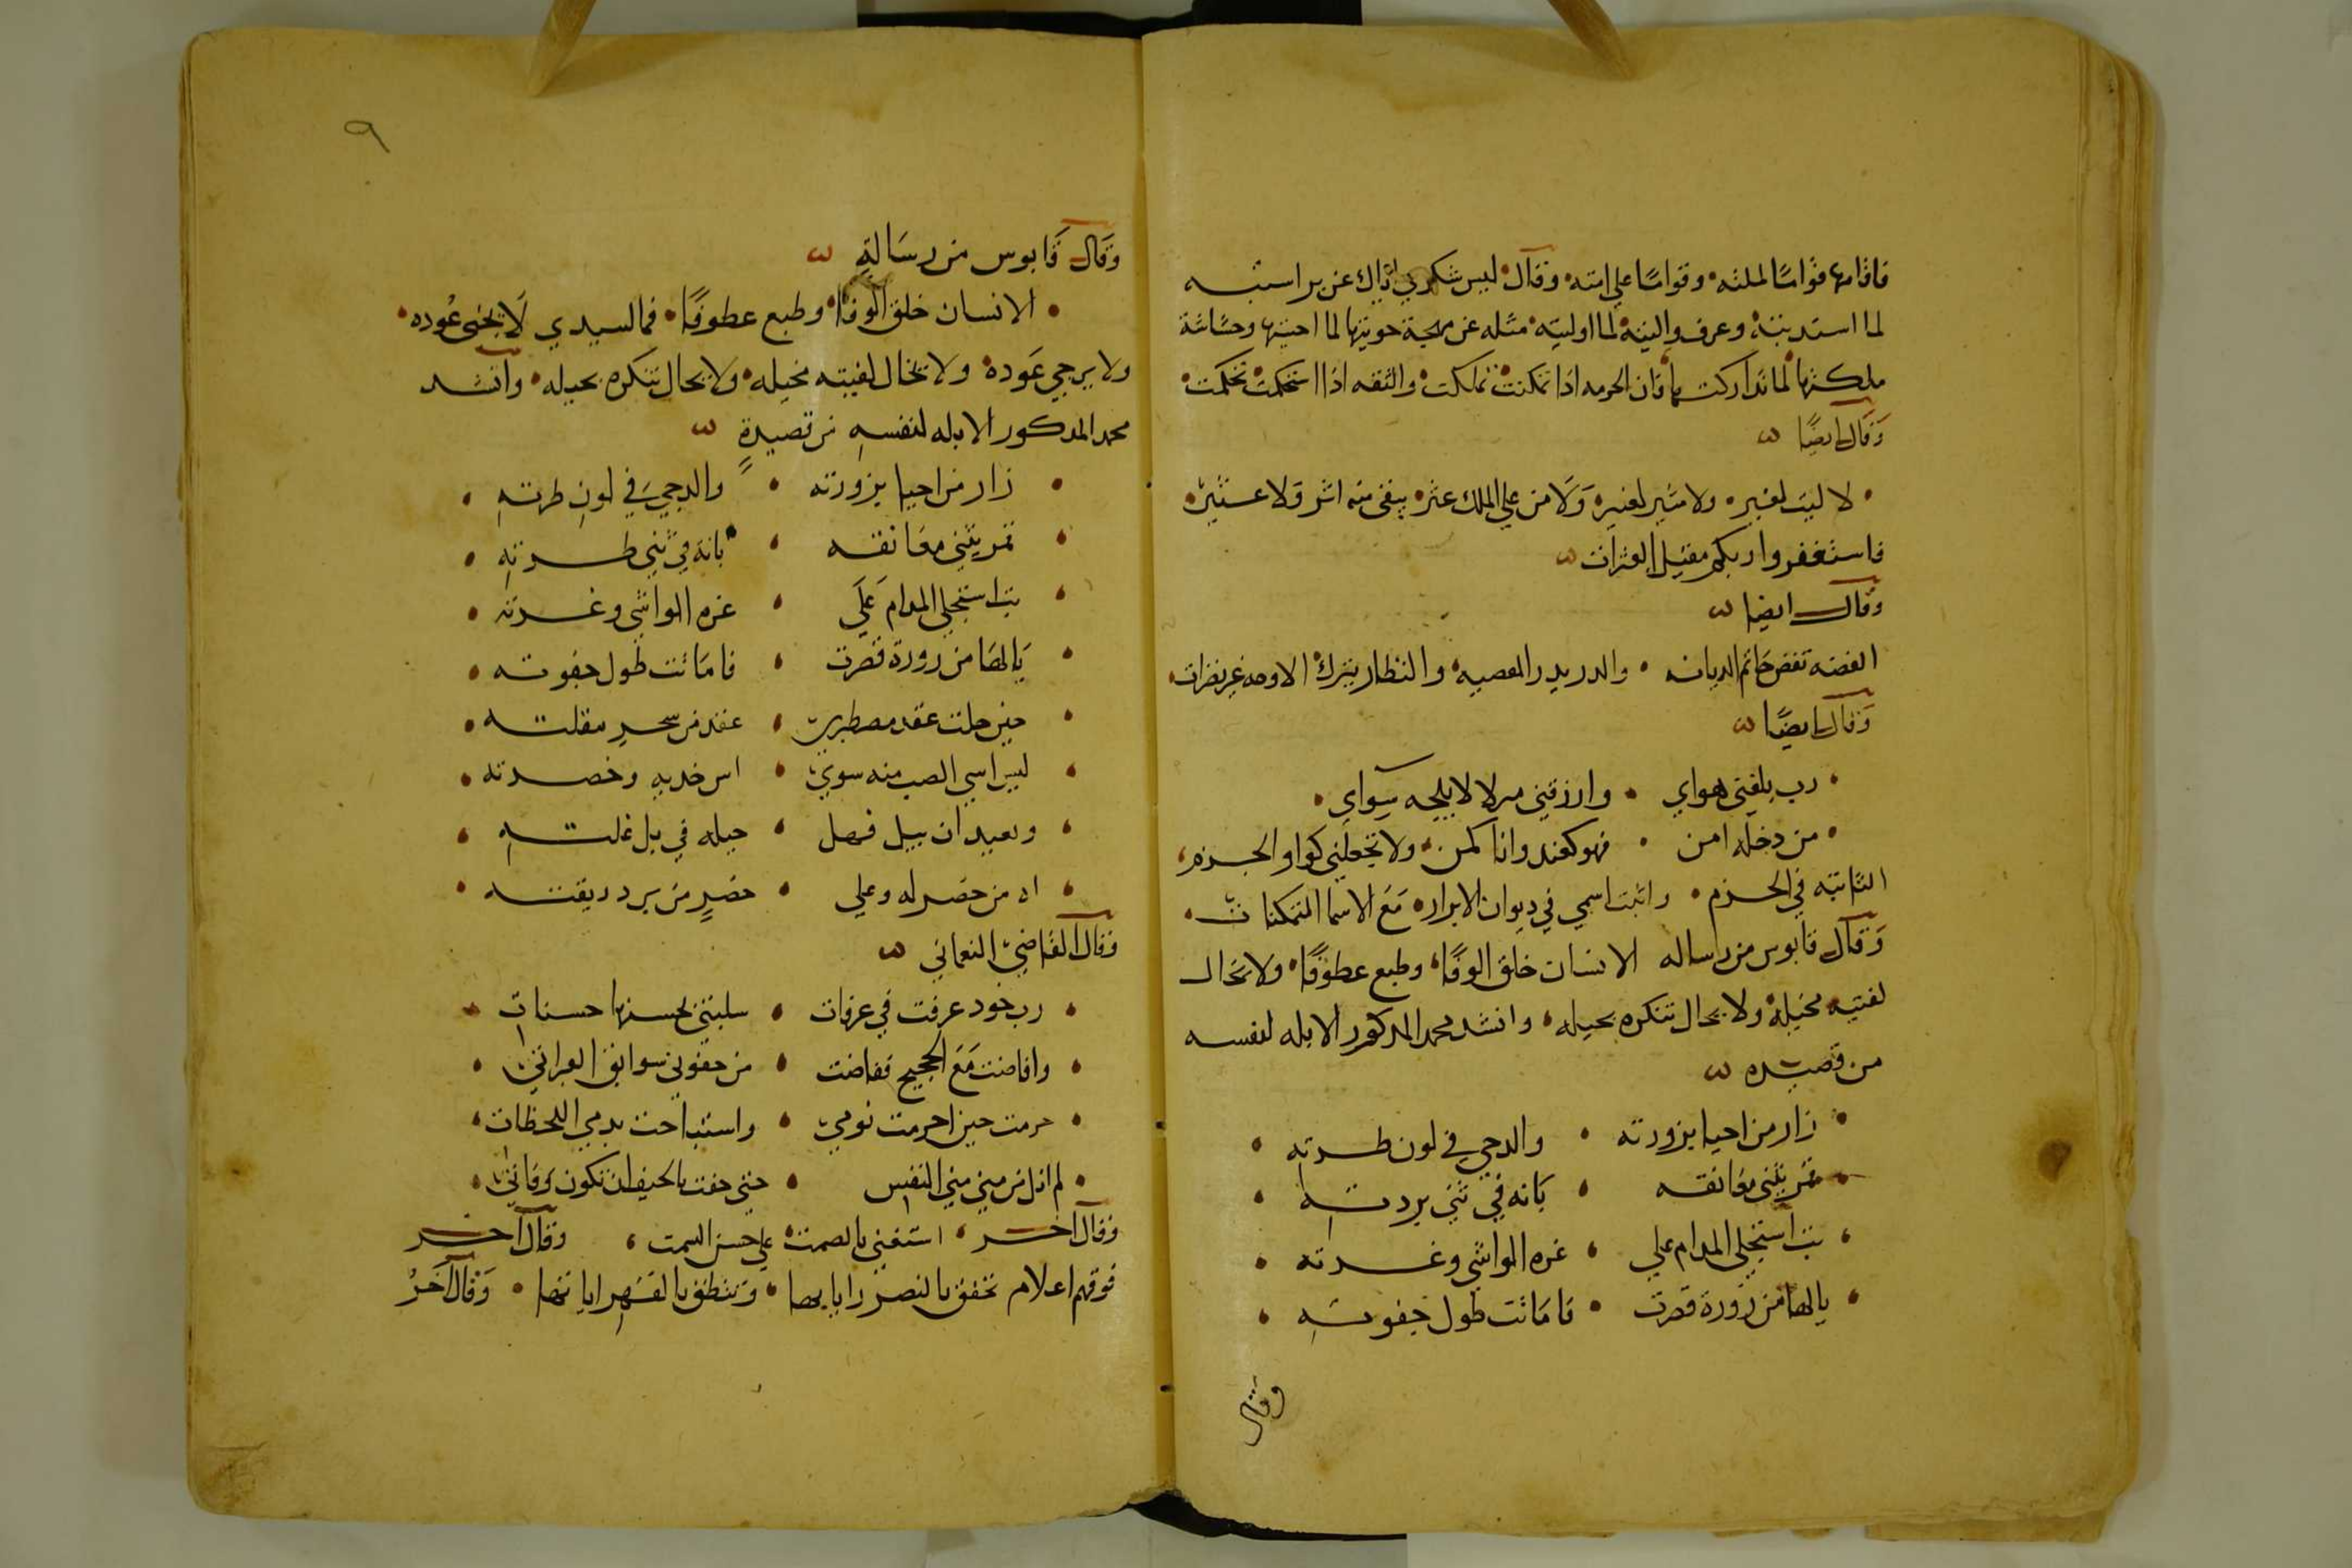 فاقامها قوامًا لملته وقوامًا على امته وقال ليس شكري اياك عن بر استبـه
لما استدينته وعرف واليته لما اوليته مثله عن مهجة حويتها لما احييتها وحشاشة
ملكتها لما تداركت بها فان الحرمه اذا تمكنت تملكت والثقه اذا استحكمت تحكمت
وقال ايضًا
لا ليث لغيره ولا مثير لغيره ولا من على الملك عثر يبقى منه اثر ولا عــثير
فاستغفروا ربكم مقيل العثرات
وقال ايضا
الفضه تفض خاتم الديانه والدر يدر المعصيه والنظار يترك الاوجه غير نضرات
وقال ايضًا
رب بلغني هواي وارزقني لا يلجه سواي
من دخله امن فهو كعند وانا كمن ولا تجعلني كواو الجزم
الثابته في الجزم واثبت اسمي في ديوان الابرار مع الاسما المتمكنات
وقال قابوس من رساله الانسان خلق الوفًا وطبع عطوفًا ولا يخال
لغيبته مخيله ولا يحال تنكره بحيله وانشد محمد المذكور الابله لنفسه
من قصيده
زار من احيا بزورته والدجي في لون طــرته
قمر يثني معانقــه بانه في ثني بردتــه
بت استجلي المدام علي غره الواشي وغــرته
يا لها من زورة قصرت فاماتت طول جفوتــه
وقال
٩
وقال قابوس من رسالةٍ
الانسان خلق الوفا وطبع عطوفًا فما لسيدي لا يخشى عُوده
ولا يرجي عَوده ولا يخال لغيبته مخيله ولا يحال تنكره بحيله وانشد
محمد المدكور الابله لنفسهِ من قصيدةٍ
زار من احيا بزورته والدجي في لون طرتهِ
قمر يثني معانقــه بانه في ثني طــرتهِ
بت استجلي المدام عَلَي غره الواشي وغــرته
يالها من زورة قصرت فاماتت طول جفوتــه
حين حلت عقد مصطبري عقد من سحر مقلتــه
ليس اسي الصب منه سوي اس خديه وخضــرته
وبعيد ان يبل فهل حيله في بل غلتــهِ
اه من خصر له وعلي خصرٍ من برد ريقتــه
وقال القاضي النعماني
رب خود عرفت في عرفات سلبتني بحسنها حسناتي
وافاضت مع الحجيج ففاضت من جفوني سوابق العبراتي
حرمت حين احرمت نومي واستباحت بدمي اللحظات
لم انل من مني مني النفس حتى خفت بالخيف ان تكون وفاتي
وقال اخــر استغني بالصمت علي حسن السمت وقال اخــر
فوقهم اعلام تخفق بالنصر راياتها وتنطق بالقهر اياتها وقال آخَرُ